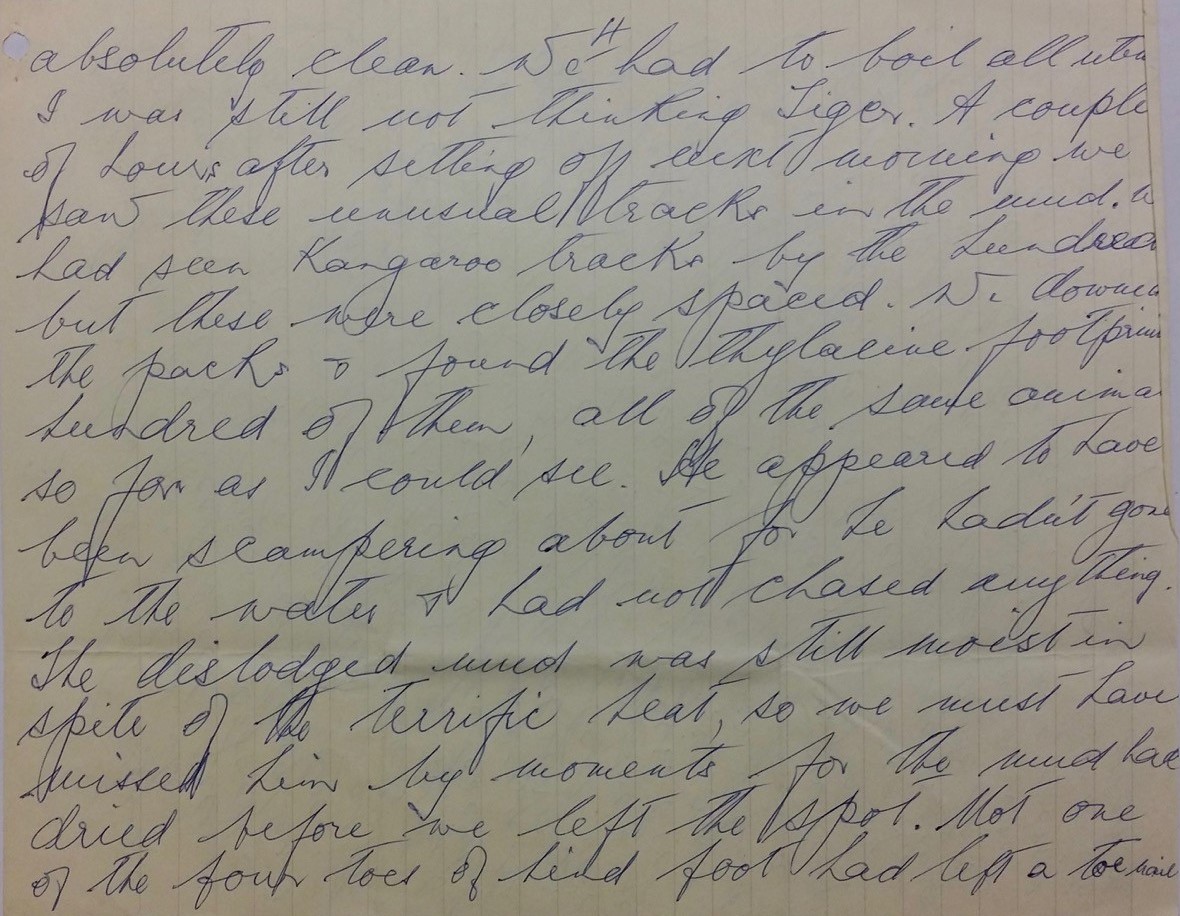 absolutely clean. We had to boil all uten
I was still not thinking Tiger. A couple
of hours after setting off next morning we
saw these unusual tracks in the mud. W
had seen Kangaroo tracks by the hundred
but these were closely spaced. We downed
the packs & found the thylacine footprin
hundred of them, all of the same anima
so far as I could see. He appeared to have
been scampering about for he hadn't gone
to the water & had not chased anything.
The dislodged mud was still moist in
spite of the terrific heat, so we must have
missed him by moments for the mud had
dried before we left the spot. Not one
of the four toes of hind foot had left a toe nail